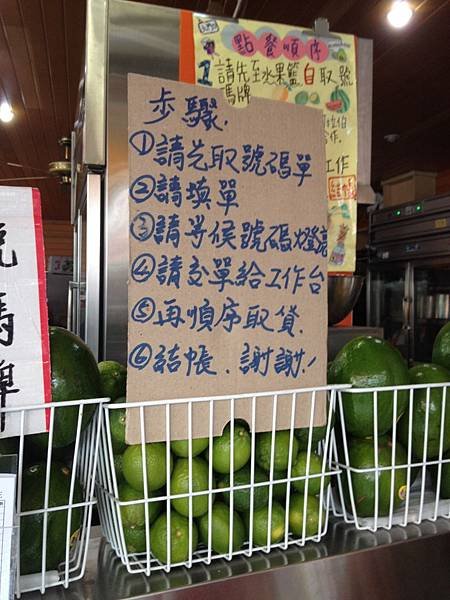 點餐順序
1 請先至水果籃自取號
馬牌
步驟.
①請先取號碼單
②請填單
③請等候號碼燈亮
④請交單給工作台
⑤再順序取貨.
⑥結帳.謝謝!
號碼牌